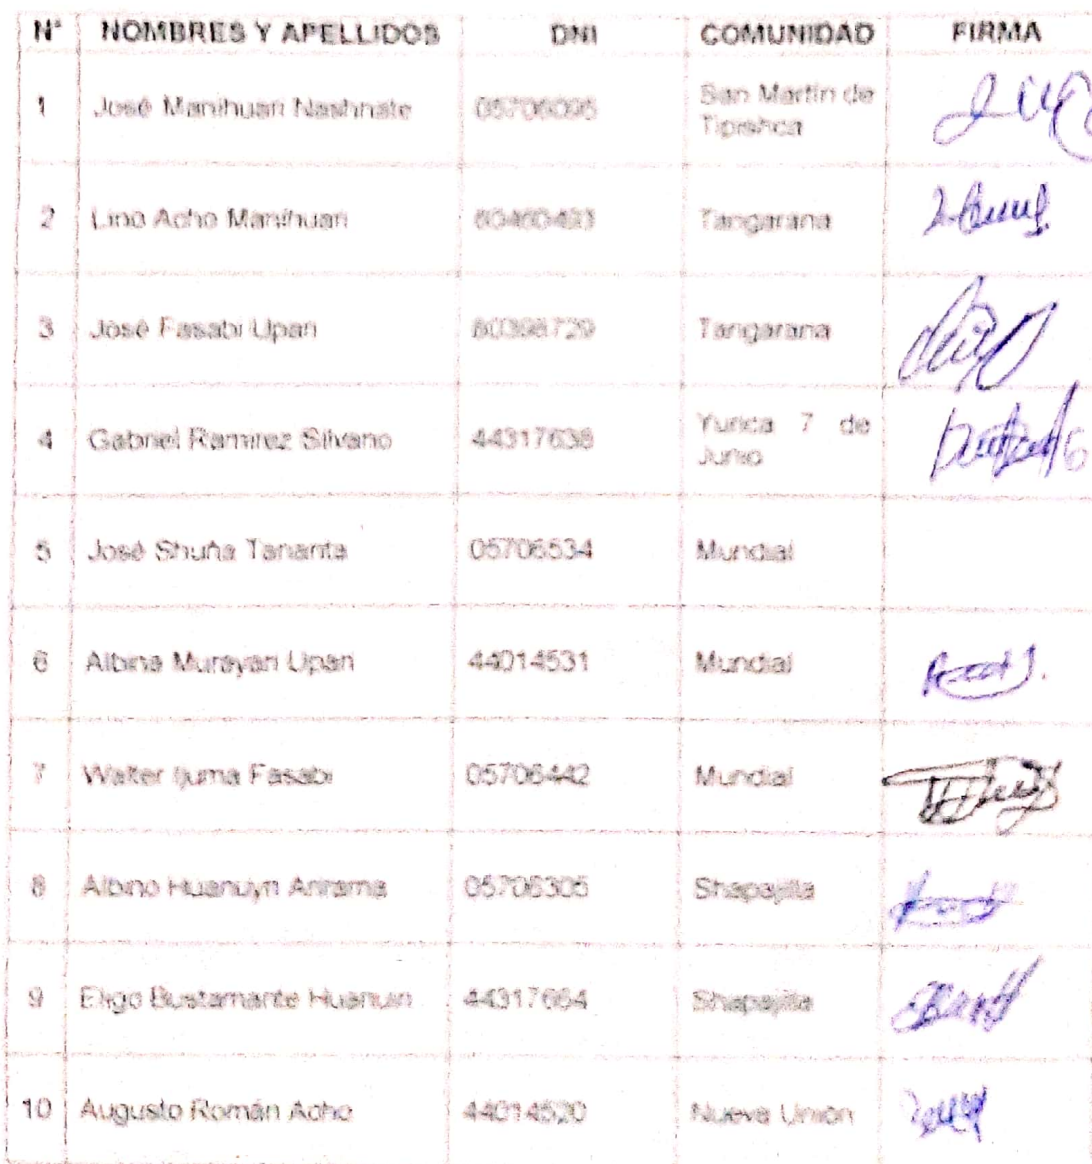 N° NOMBRES Y APELLIDOS DNI COMUNIDAD FIRMA
1 José Manihuari Nashnate 05706095 San Martín de
Tipishca
2 Lino Acho Manihuari 60460493 Tangarana
3 José Fasabi Upari 80398729 Tangarana
4 Gabriel Ramirez Silvano 44317638 Yurica 7 de
Junio
5 José Shuña Tananta 05706534 Mundial
6 Albina Murayari Upari 44014531 Mundial
7 Walter Ijuma Fasabi 05706442 Mundial
8 Albino Huanuyri Arirama 05706305 Shapajilla
9 Eligo Bustamante Huanuiri 44317664 Shapajilla
10 Augusto Román Acho 44014520 Nueva Unión